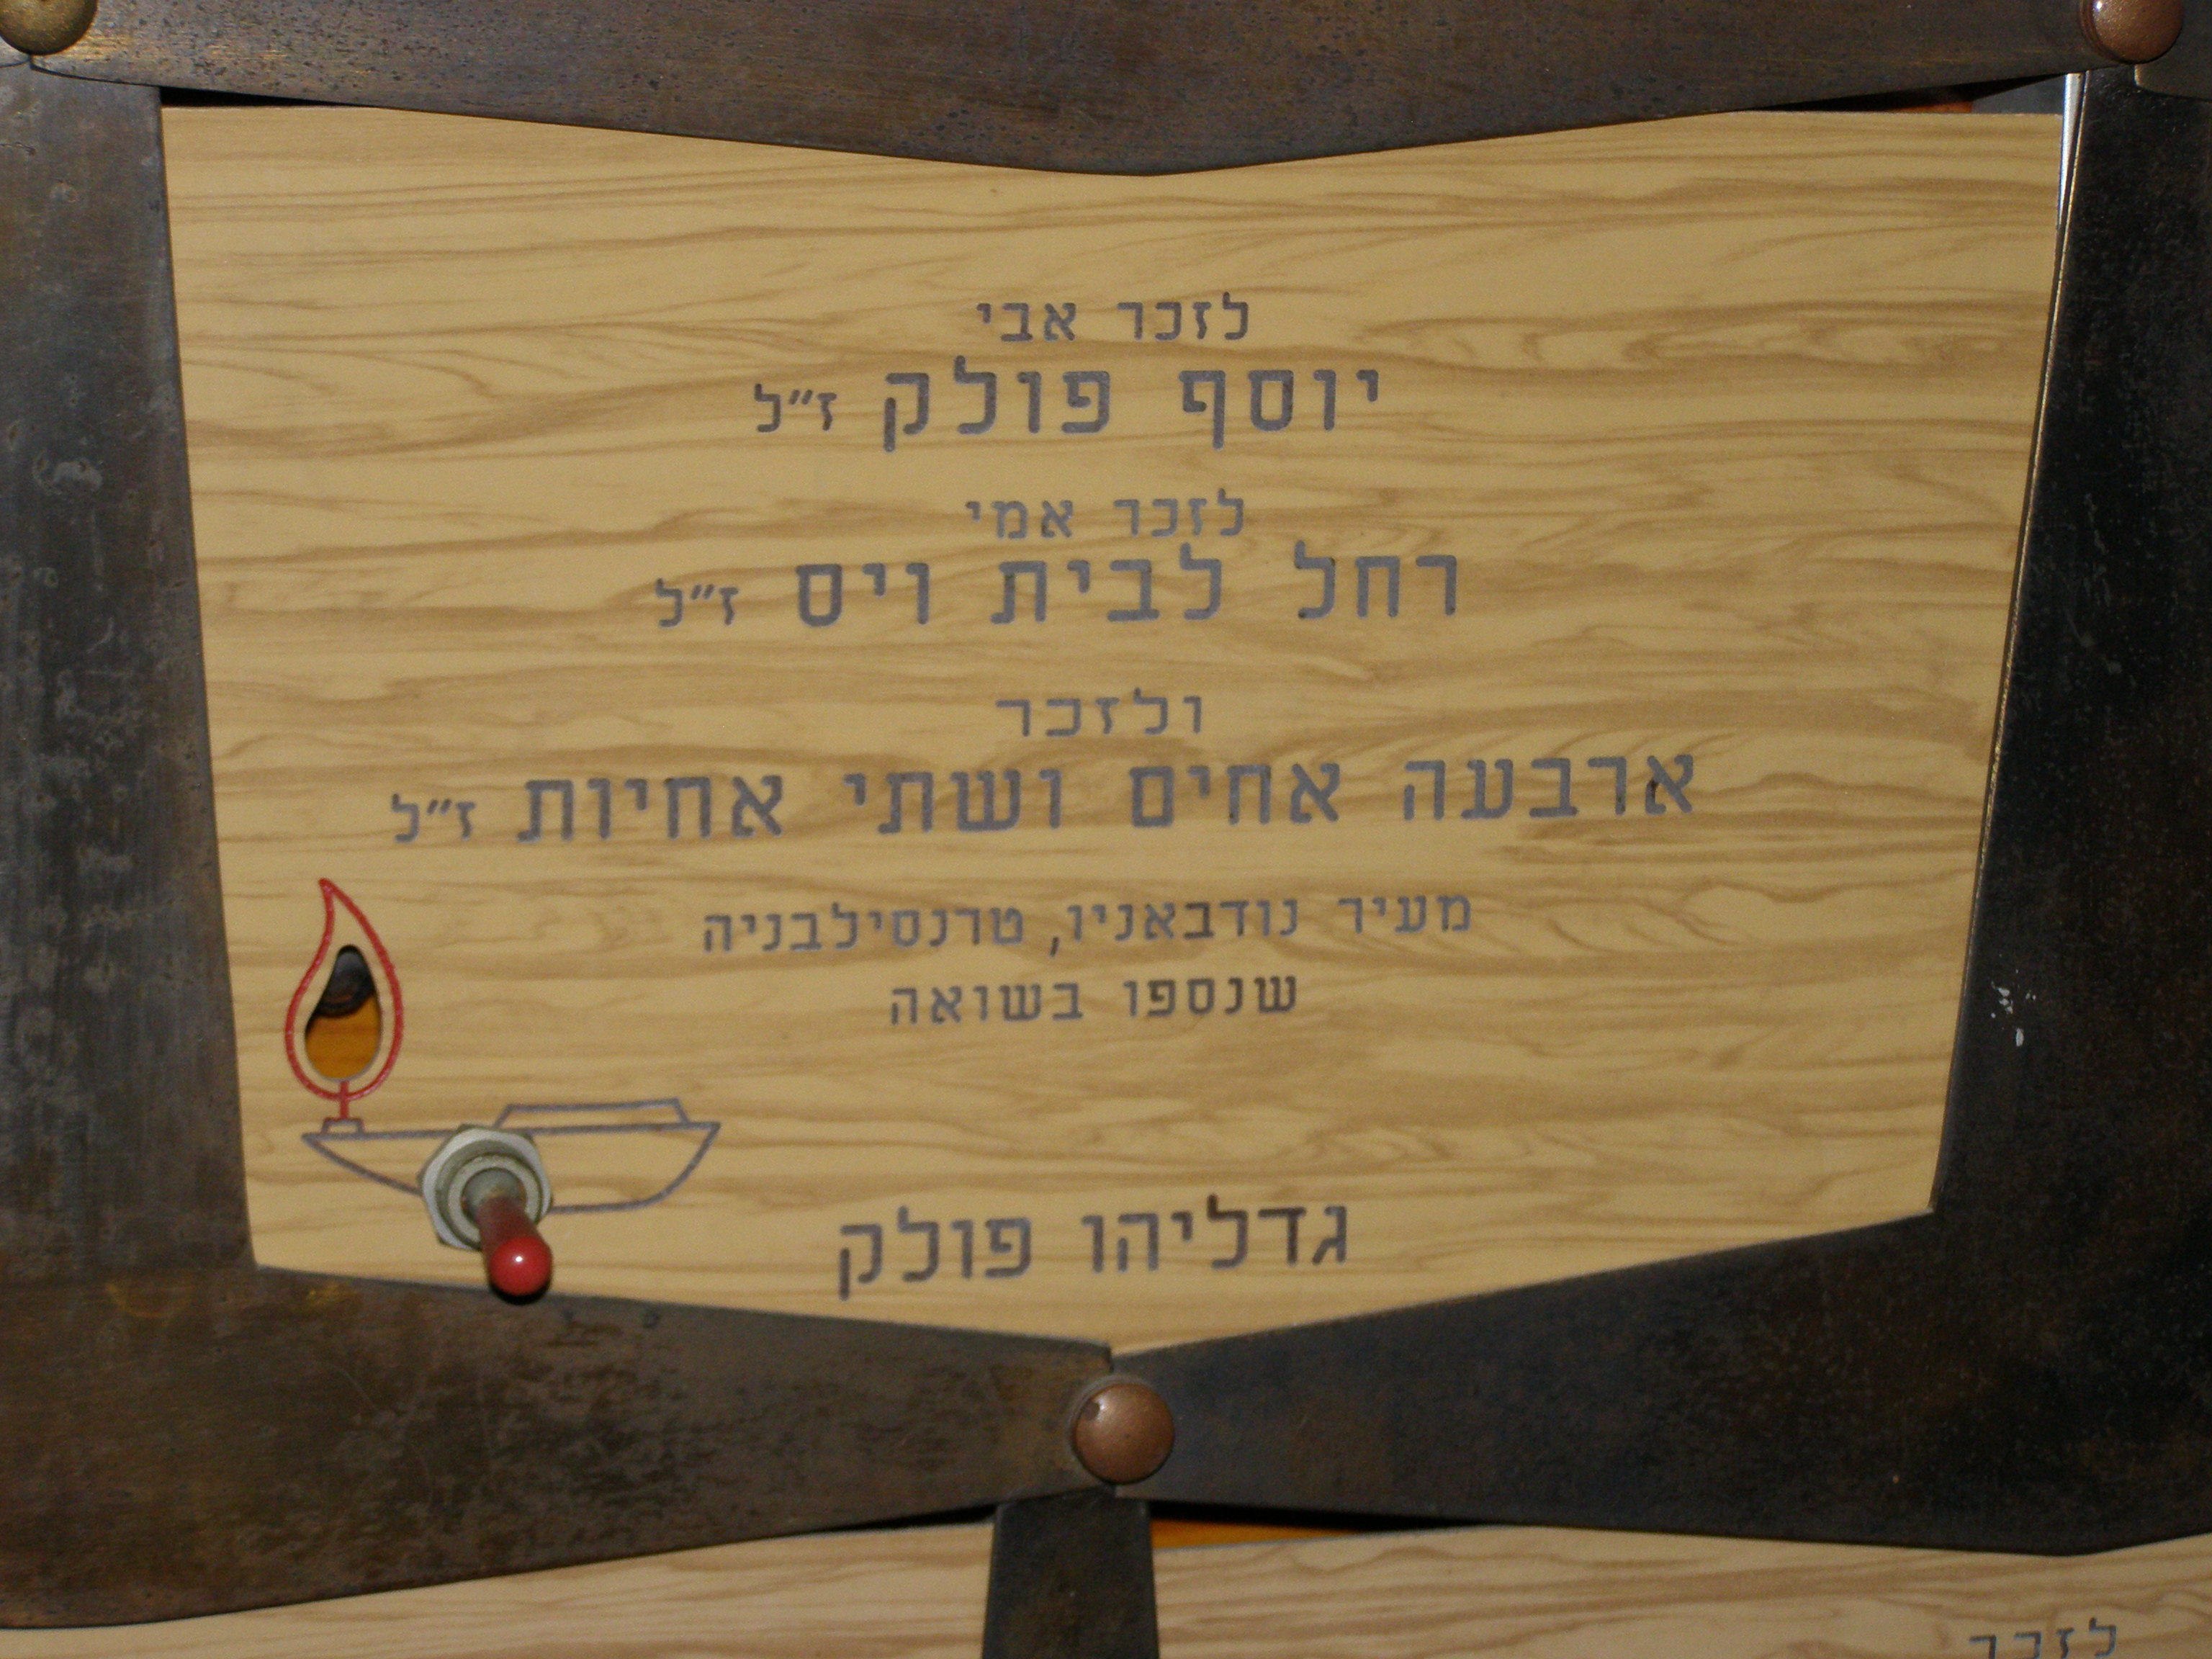 לזכר אבי
יוסף פולק ז״ל
לזכר אמי
רחל לבית ויס ז״ל
ולזכר
ארבעה אחים ושתי אחיות ז״ל
מעיר נודבאניו, טרנסילבניה
שנספו בשואה
גדליהו פולק
לזכר